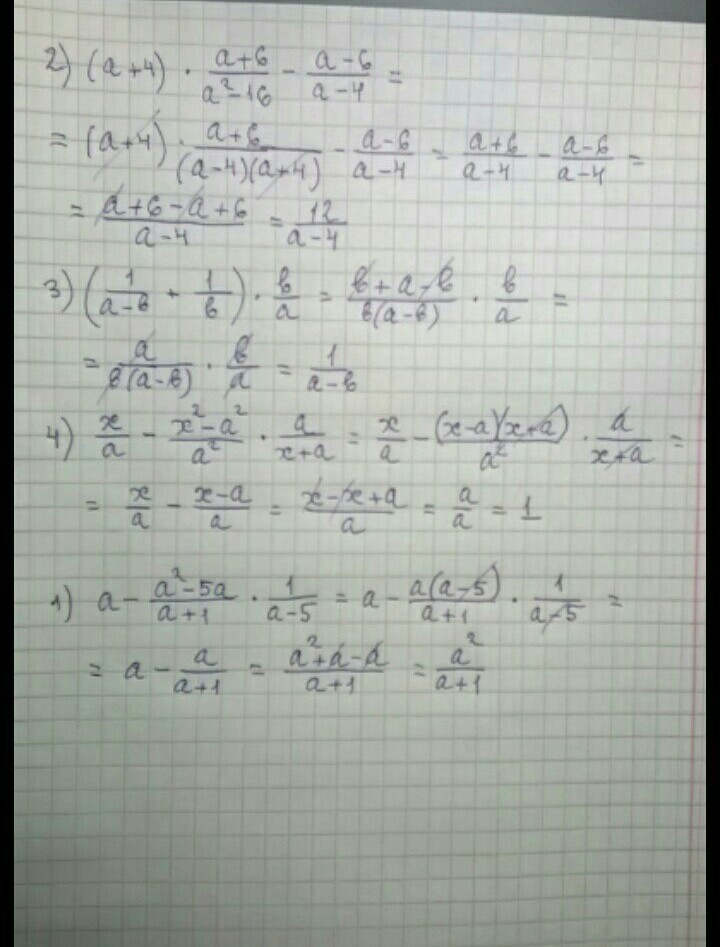 2) (a+4) · (a+6)/(a²-16) - (a-6)/(a-4) =
= (a+4) · (a+6)/((a-4)(a+4)) - (a-6)/(a-4) = (a+6)/(a-4) - (a-6)/(a-4) =
= (a+6-a+6)/(a-4) = 12/(a-4)
3) (1/(a-в) + 1/в) · в/a = (в+a-в)/(в(a-в)) · в/a =
= a/(в(a-в)) · в/a = 1/(a-в)
4) x/a - (x²-a²)/a² · a/(x+a) = x/a - ((x-a)(x+a))/a² · a/(x+a) =
= x/a - (x-a)/a = (x-x+a)/a = a/a = 1
1) a - (a²-5a)/(a+1) · 1/(a-5) = a - (a(a-5))/(a+1) · 1/(a-5) =
= a - a/(a+1) = (a²+a-a)/(a+1) = a²/(a+1)